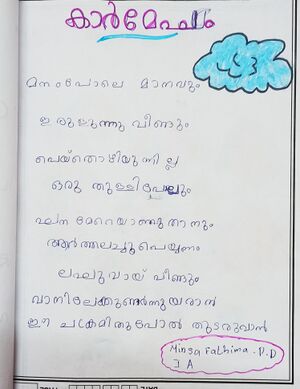 കാർമേഘം
മനംപോലെ മാനവും
ഇരുളുന്നു വീണ്ടും
പെയ്തൊഴിയുന്നില്ല
ഒരു തുള്ളിപോലും
ഘന മേറെയാണുതാനും
ആർത്തലച്ചുപെയ്യണം
ലഘുവായ് വീണ്ടും
വാനിലേക്കുണർന്നുയരാൻ
ഈ ചക്രമിതുപോൽ തുടരുവാൻ
Minsa Fathima . P.D
I A